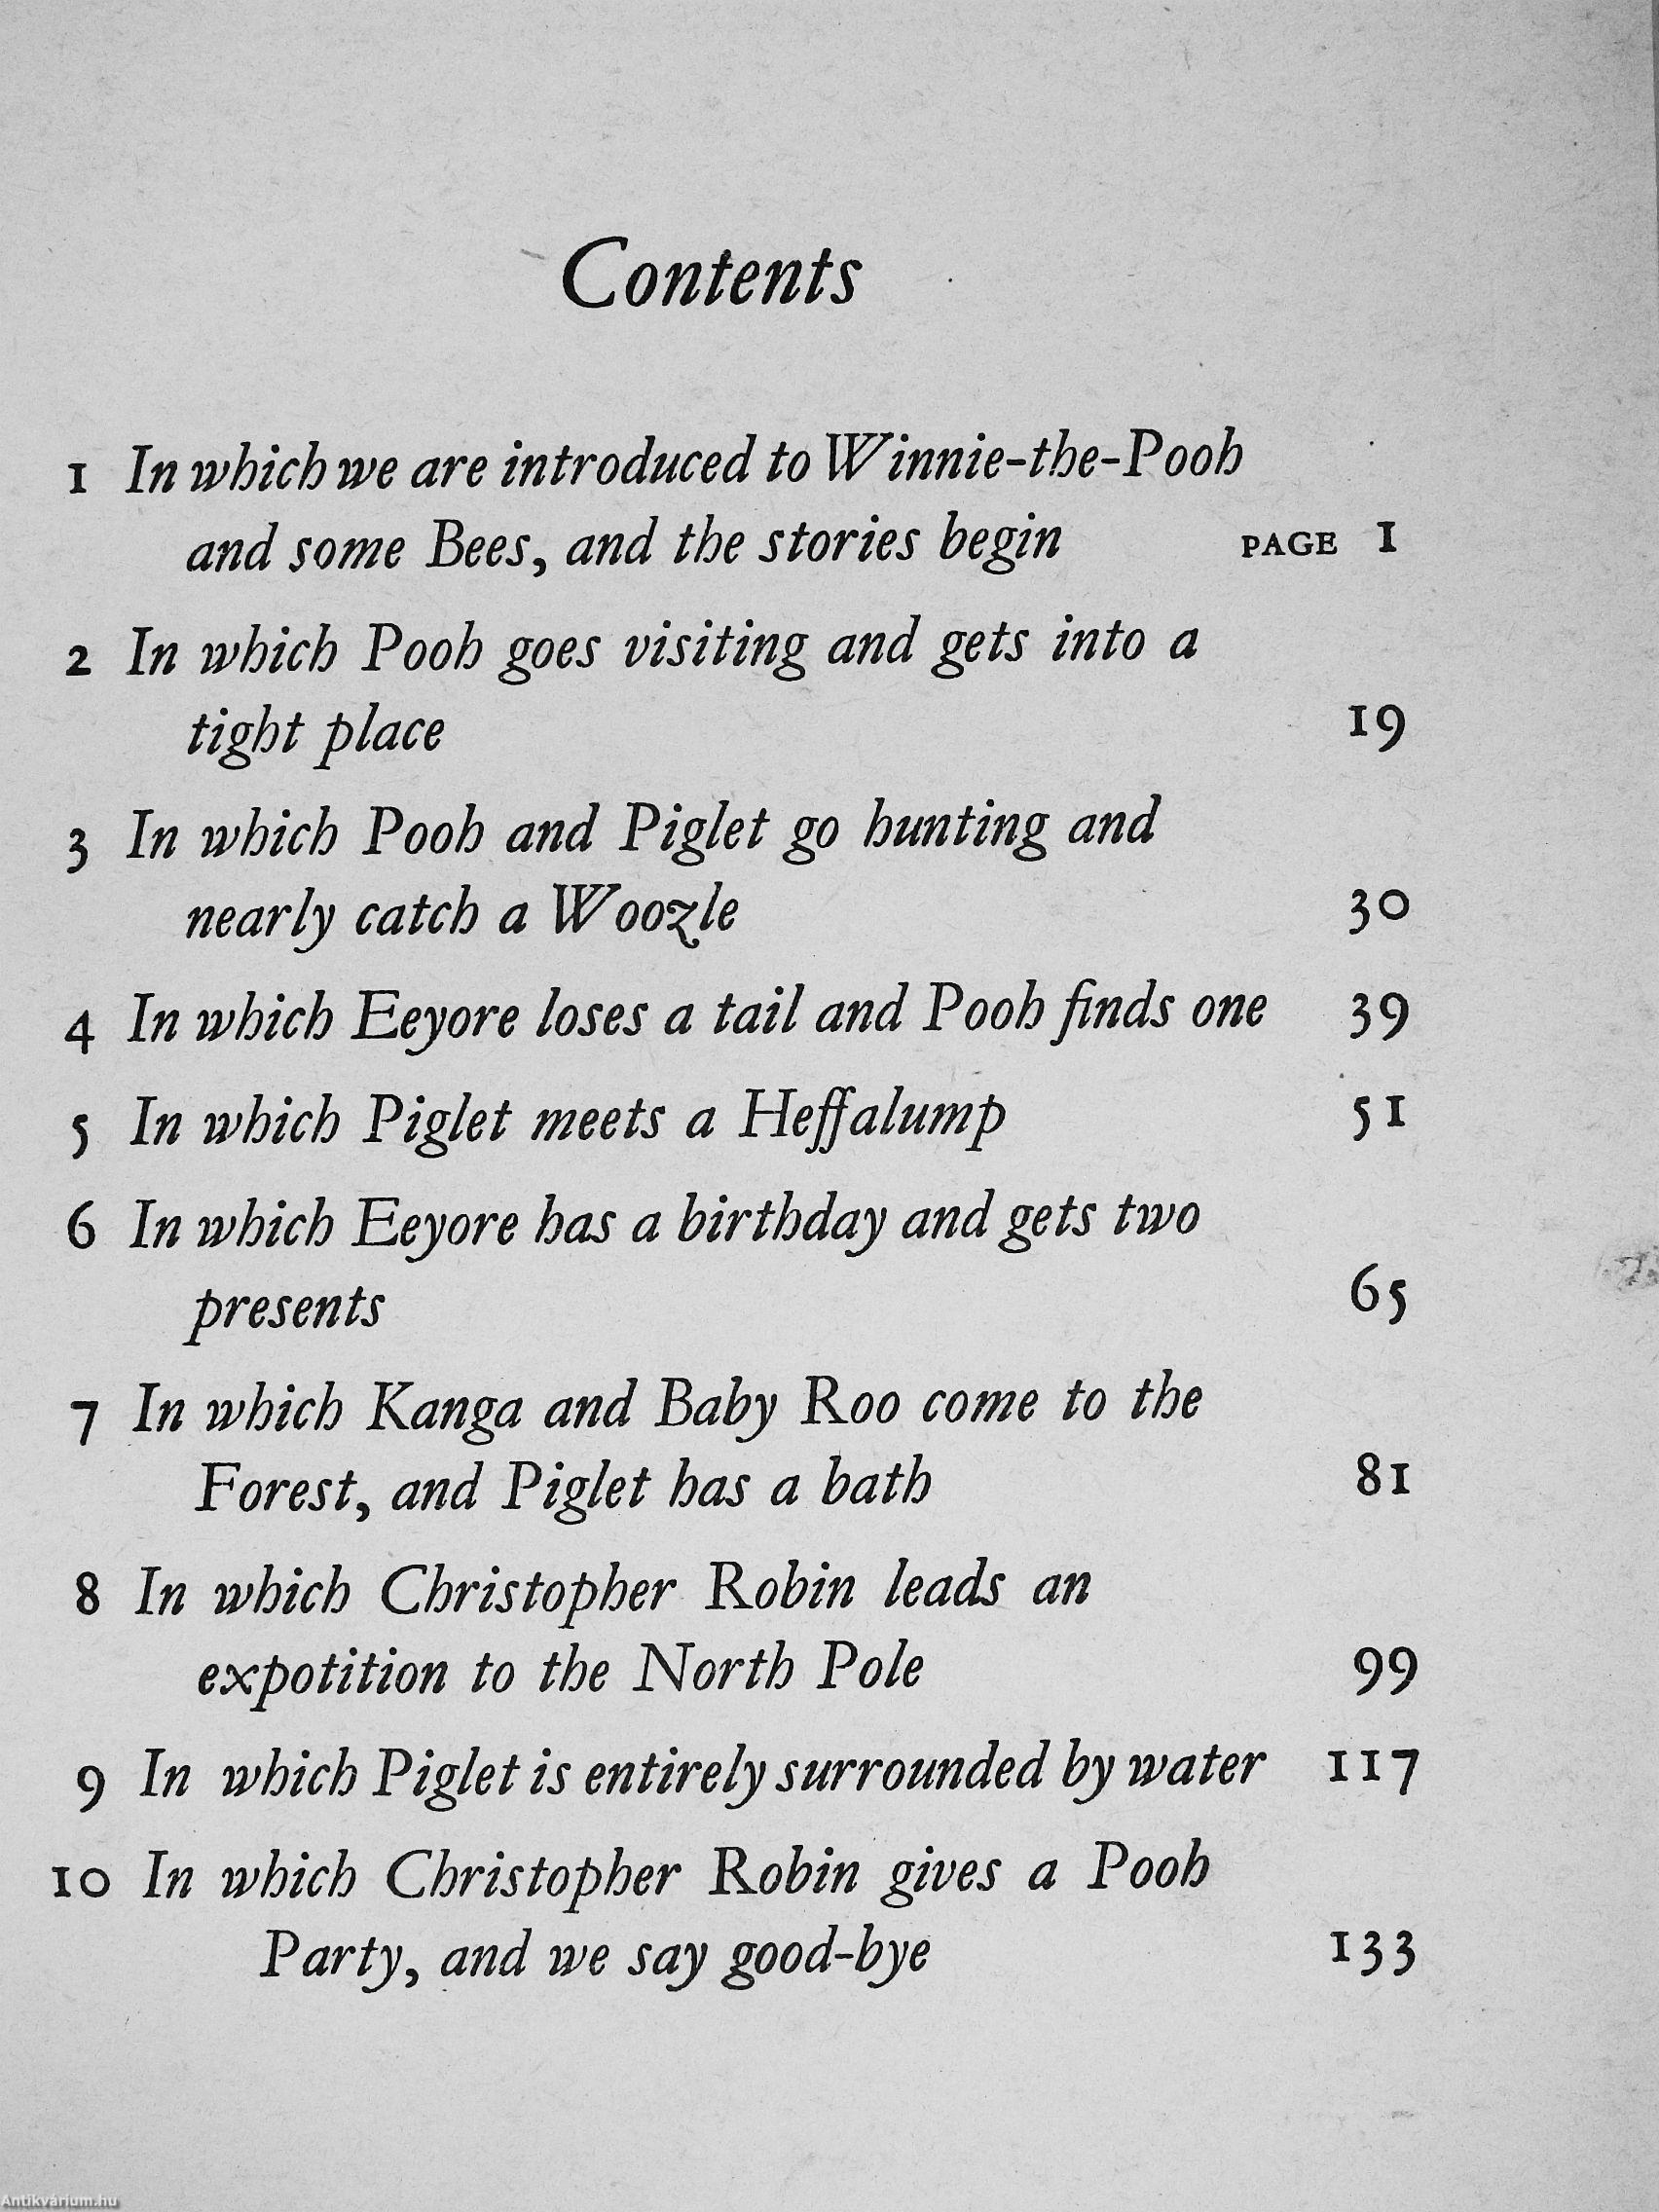 Contents
1 In which we are introduced to Winnie-the-Pooh
and some Bees, and the stories begin PAGE 1
2 In which Pooh goes visiting and gets into a
tight place 19
3 In which Pooh and Piglet go hunting and
nearly catch a Woozle 30
4 In which Eeyore loses a tail and Pooh finds one 39
5 In which Piglet meets a Heffalump 51
6 In which Eeyore has a birthday and gets two
presents 65
7 In which Kanga and Baby Roo come to the
Forest, and Piglet has a bath 81
8 In which Christopher Robin leads an
expotition to the North Pole 99
9 In which Piglet is entirely surrounded by water 117
10 In which Christopher Robin gives a Pooh
Party, and we say good-bye 133
Antikvarium.hu